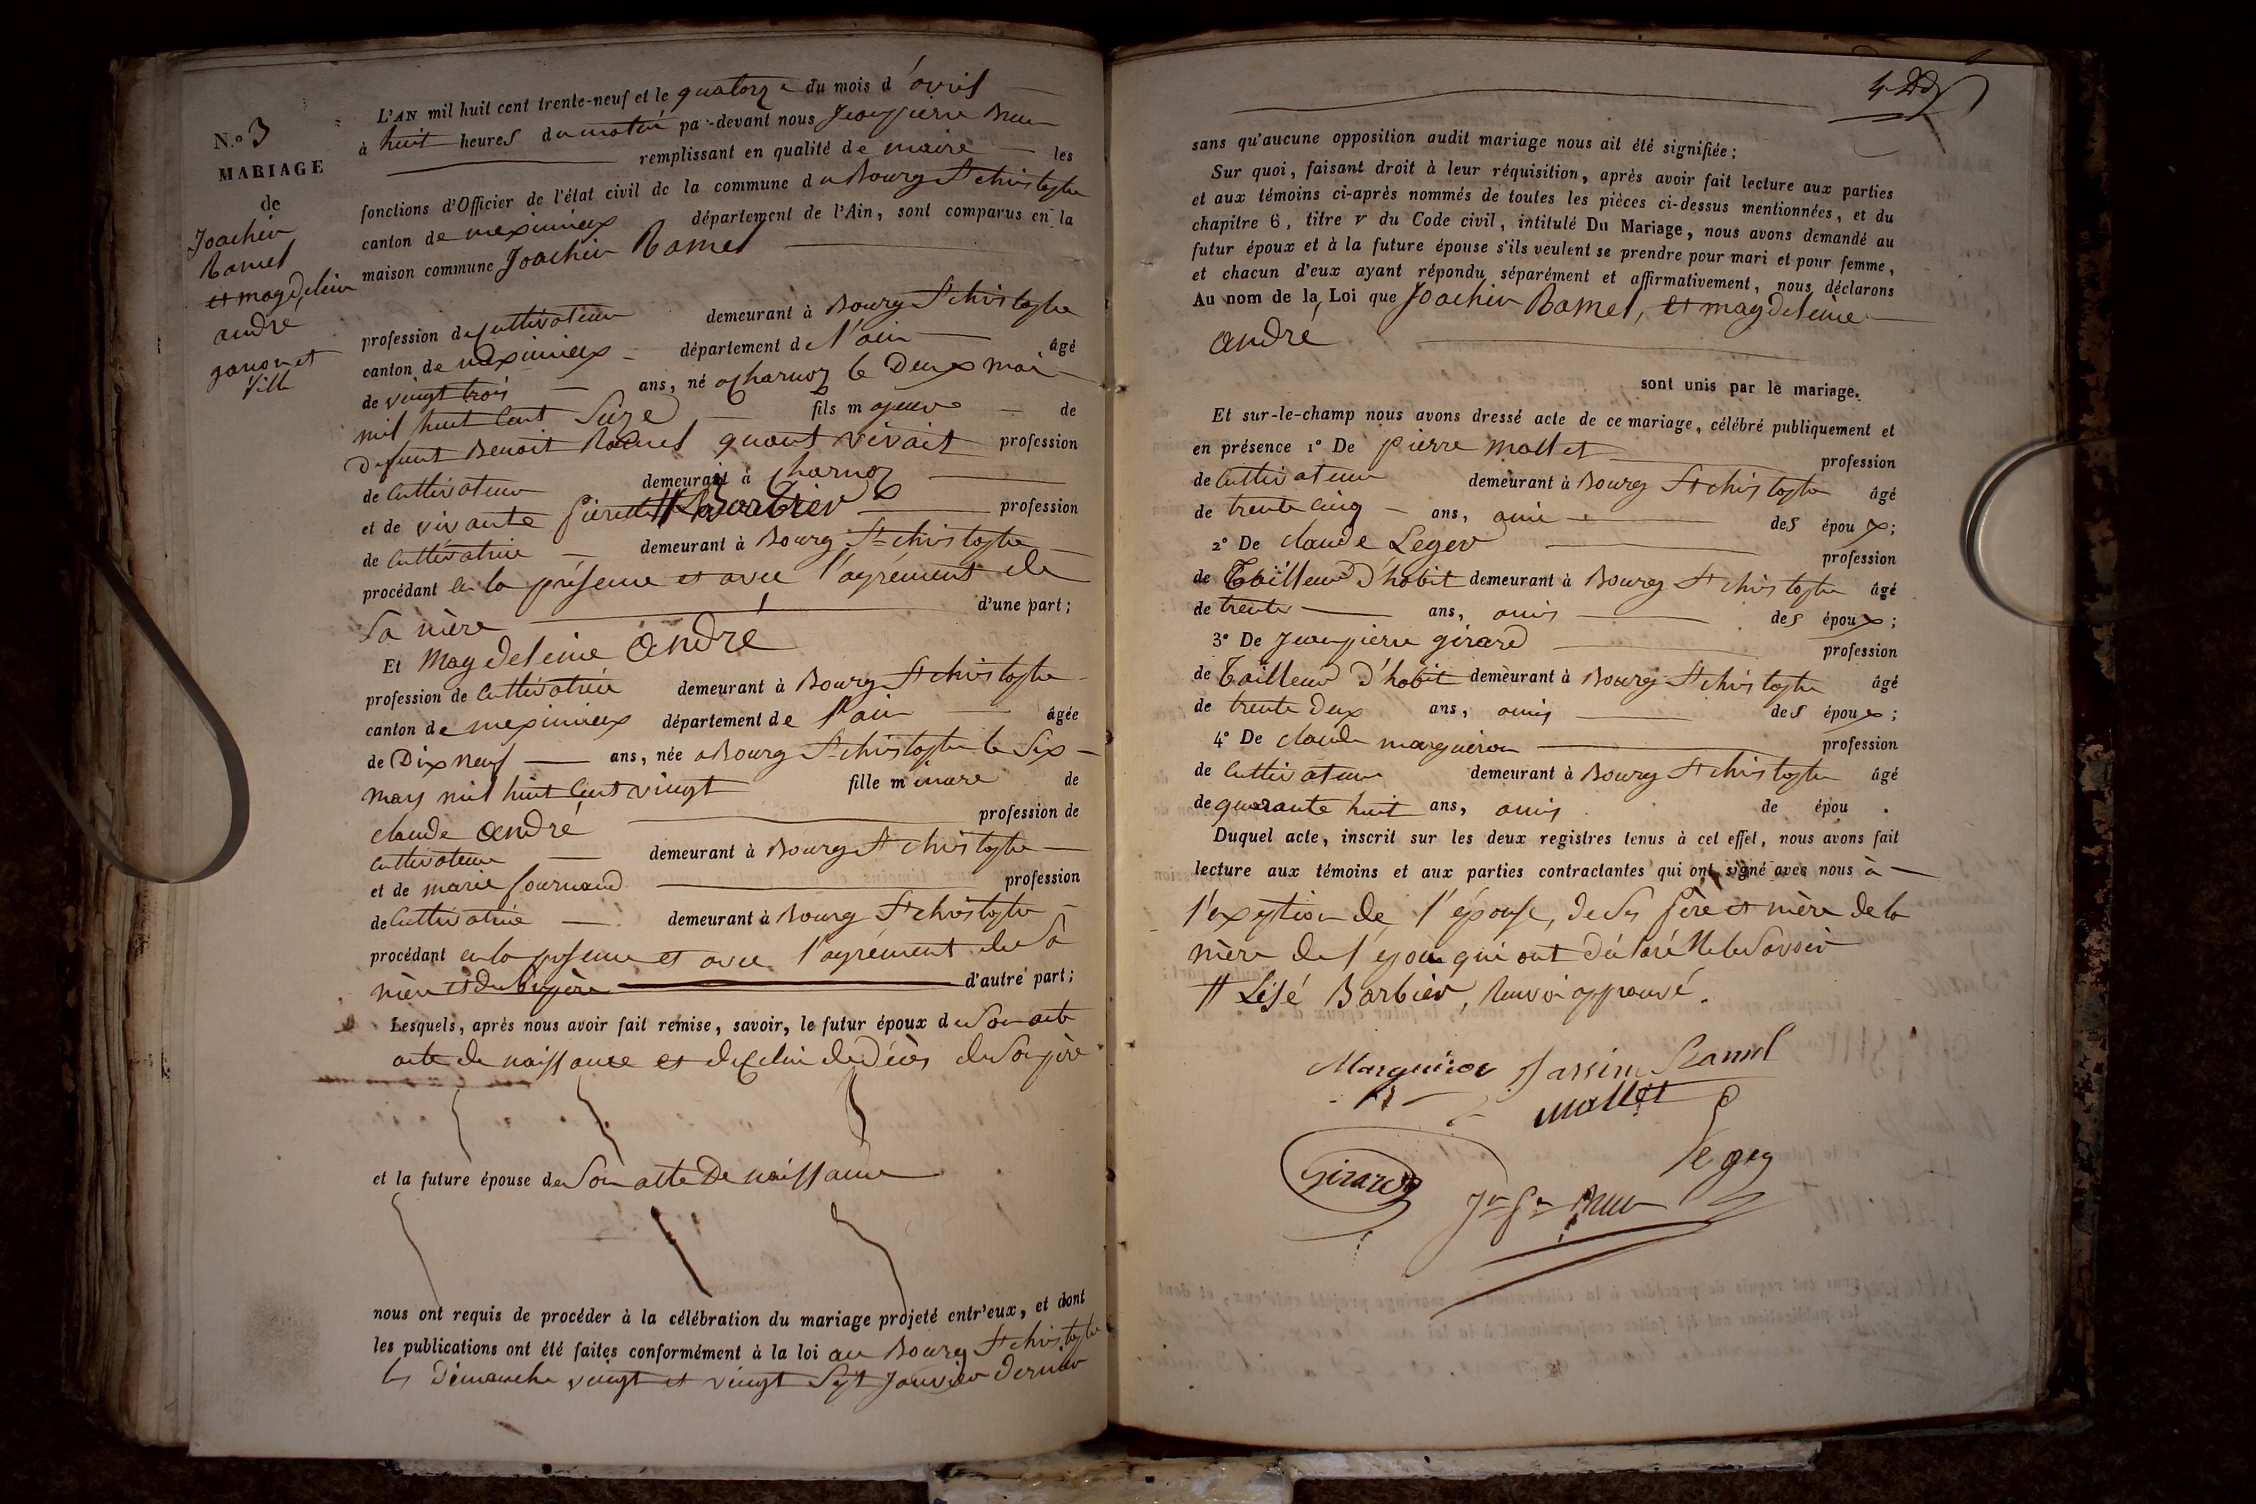 N.o 3
MARIAGE
de
Joachin
Ramel
et magdeleine
andré
garçon et
fille
L'AN mil huit cent trente-neuf et le quatorze du mois d'avril
à huit heures du matin par-devant nous Jeanpierre Brun
remplissant en qualité de maire les
fonctions d'Officier de l'état civil de la commune du Bourg St christophe
canton de meximieux département de l'Ain, sont comparus en la
maison commune Joachin Ramel
profession de Cultivateur demeurant à Bourg St christophe
canton de meximieux département de l'ain âgé
de vingt trois ans, né a charnoz le Deux mai
mil huit Cent Seize fils majeur de
defunt Benoit Ramel quant vivait profession
de Cultivateur demeurant à Charnoz
et de vivante pierrette # Barbier profession
de Cultivatrice demeurant à Bourg St christophe
procédant en la présence et avec l'agrément de
Sa mère d'une part;
Et Magdeleine André
profession de Cultivatrice demeurant à Bourg St christophe
canton de meximieux département de l'ain âgée
de Dix neuf ans, née a Bourg St christophe le Six
mars mil huit Cent vingt fille mineure de
claude André profession de
Cultivateur demeurant à Bourg St christophe
et de marie fournand profession
de Cultivatrice demeurant à Bourg St christophe
procédant en la présence et avec l'agrément de Sa
mère et de Son père d'autre part;
Lesquels, après nous avoir fait remise, savoir, le futur époux de Son acte
acte de naissance et de Celui de Décès de Son père
et la future épouse de Son acte De naissance
nous ont requis de procéder à la célébration du mariage projeté entr'eux, et dont
les publications ont été faites conformément à la loi au Bourg St christophe
les Dimanche vingt et vingt Sept Janvier Dernier
sans qu'aucune opposition audit mariage nous ait été signifiée;
Sur quoi, faisant droit à leur réquisition, après avoir fait lecture aux parties
et aux témoins ci-après nommés de toutes les pièces ci-dessus mentionnées, et du
chapitre 6, titre v du Code civil, intitulé Du Mariage, nous avons demandé au
futur époux et à la future épouse s'ils veulent se prendre pour mari et pour femme,
et chacun d'eux ayant répondu séparément et affirmativement, nous déclarons
Au nom de la Loi que Joachin Ramel, et magdeleine
andré
sont unis par le mariage.
Et sur-le-champ nous avons dressé acte de ce mariage, célébré publiquement et
en présence 1o De pierre mallet profession
de Cultivateur demeurant à Bourg St christophe âgé
de trente cinq ans, ami des époux;
2o De claude Leger profession
de Tailleur d'habit demeurant à Bourg St christophe âgé
de trente ans, amis des époux;
3o De Jeanpierre girard profession
de Tailleur d'habit demeurant à Bourg St christophe âgé
de trente deux ans, amis des époux;
4o De claude marguiron profession
de Cultivateur demeurant à Bourg St christophe âgé
de quarante huit ans, amis de épou .
Duquel acte, inscrit sur les deux registres tenus à cet effet, nous avons fait
lecture aux témoins et aux parties contractantes qui ont signé avec nous à
l'exeption de l'épouse, de Ses père et mère de la
mère de l'époux qui ont déclaré Ne le Savoir
# Lisé Barbier, Renvoi approuvé.
Marguiron Jassim Ramel
Mallet
Girard Leger
Jn Pre Brun